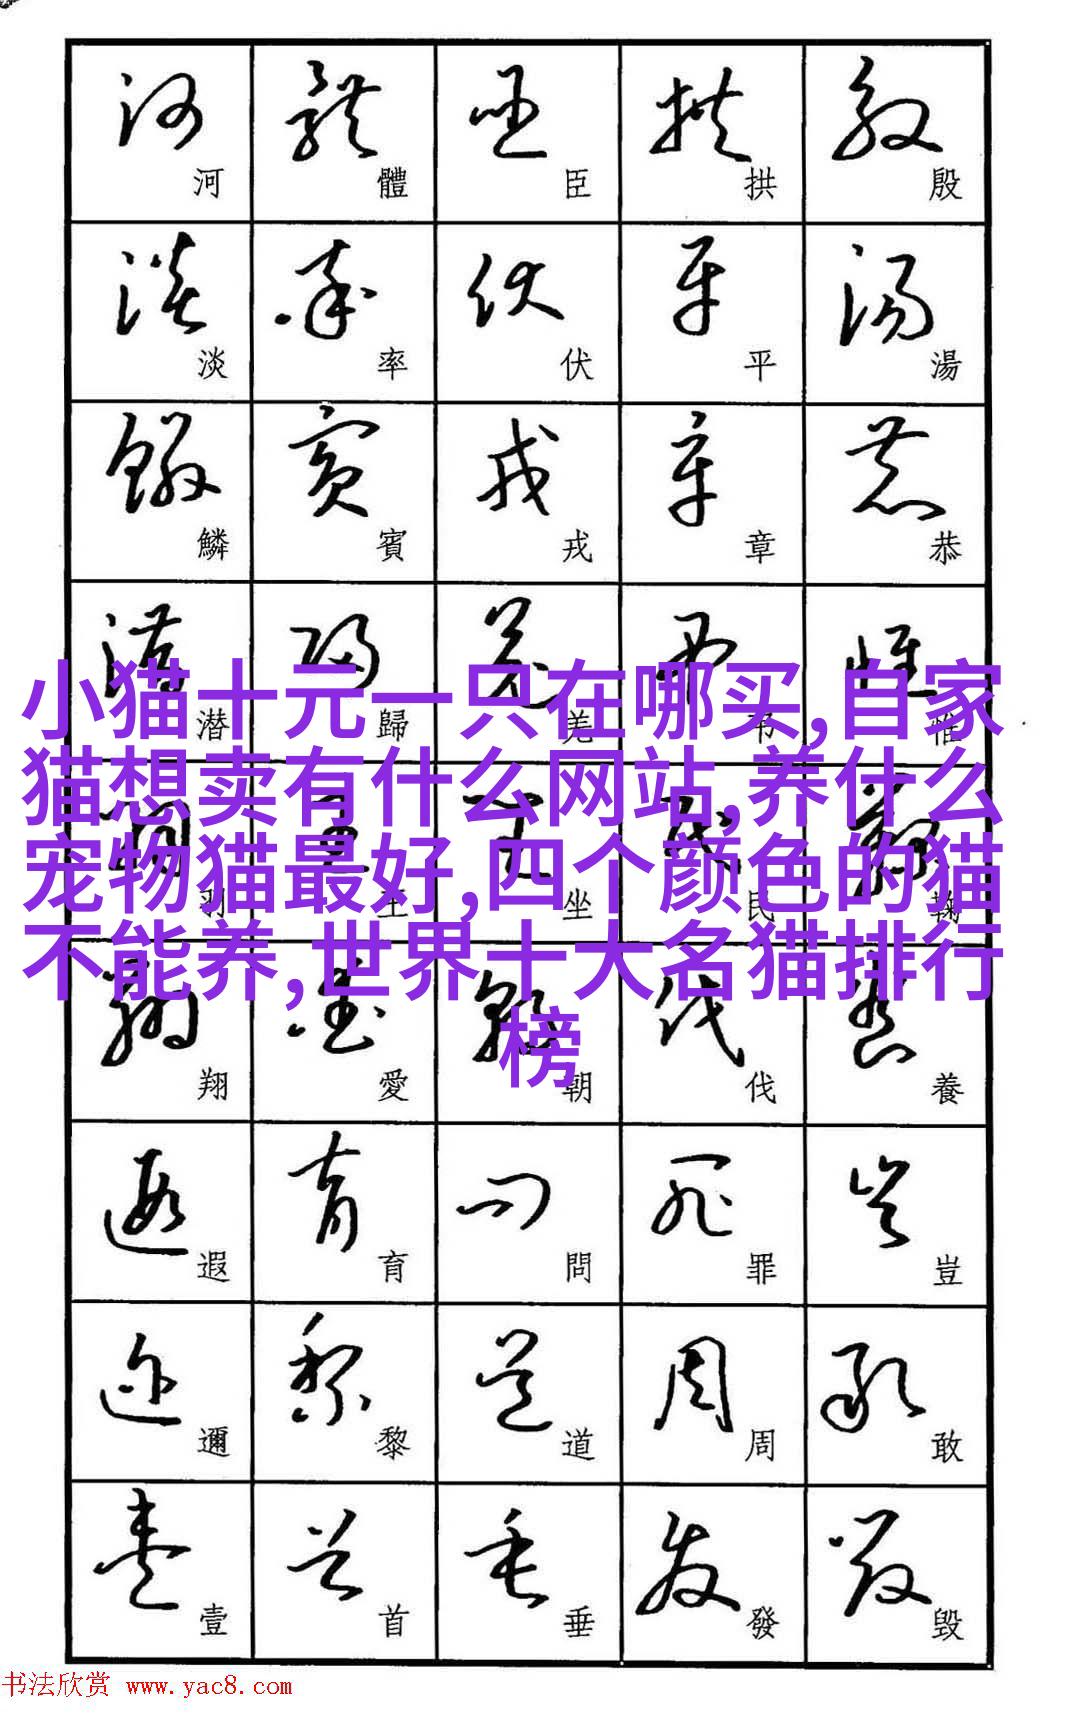 河 體 臣 拱 殷
淡 率 伏 平 湯
鱗 賓 戎 章 恭
潜 歸 羌 吊 惟
小猫十元一只在哪买,自家
猫想卖有什么网站,养什么
宠物猫最好,四个颜色的猫
不能养,世界十大名猫排行
榜
羽 王 坐 民 鞠
翔 愛 朝 伐 養
遐 育 問 罪 豈
邇 黎 道 周 敢
壹 首 垂 發 毀
书法欣赏 www.yac8.com